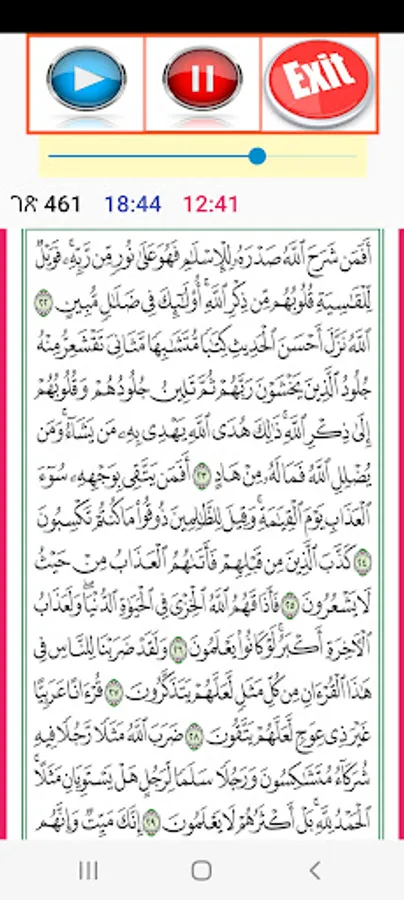 Exit
ገጽ 461 18:44 12:41
أَفَمَن شَرَحَ ٱللَّهُ صَدْرَهُۥ لِلْإِسْلَٰمِ فَهُوَ عَلَىٰ نُورٍ مِّن رَّبِّهِۦۚ فَوَيْلٌ
لِّلْقَٰسِيَةِ قُلُوبُهُم مِّن ذِكْرِ ٱللَّهِۚ أُو۟لَٰٓئِكَ فِى ضَلَٰلٍ مُّبِينٍ ٢٢
ٱللَّهُ نَزَّلَ أَحْسَنَ ٱلْحَدِيثِ كِتَٰبًا مُّتَشَٰبِهًا مَّثَانِىَ تَقْشَعِرُّ مِنْهُ
جُلُودُ ٱلَّذِينَ يَخْشَوْنَ رَبَّهُمْ ثُمَّ تَلِينُ جُلُودُهُمْ وَقُلُوبُهُمْ
إِلَىٰ ذِكْرِ ٱللَّهِۚ ذَٰلِكَ هُدَى ٱللَّهِ يَهْدِى بِهِۦ مَن يَشَآءُۚ وَمَن
يُضْلِلِ ٱللَّهُ فَمَا لَهُۥ مِنْ هَادٍ ٢٣ أَفَمَن يَتَّقِى بِوَجْهِهِۦ سُوٓءَ
ٱلْعَذَابِ يَوْمَ ٱلْقِيَٰمَةِۚ وَقِيلَ لِلظَّٰلِمِينَ ذُوقُوا۟ مَا كُنتُمْ تَكْسِبُونَ
٢٤ كَذَّبَ ٱلَّذِينَ مِن قَبْلِهِمْ فَأَتَىٰهُمُ ٱلْعَذَابُ مِنْ حَيْثُ
لَا يَشْعُرُونَ ٢٥ فَأَذَاقَهُمُ ٱللَّهُ ٱلْخِزْىَ فِى ٱلْحَيَوٰةِ ٱلدُّنْيَاۖ وَلَعَذَابُ
ٱلْءَاخِرَةِ أَكْبَرُۚ لَوْ كَانُوا۟ يَعْلَمُونَ ٢٦ وَلَقَدْ ضَرَبْنَا لِلنَّاسِ فِى
هَٰذَا ٱلْقُرْءَانِ مِن كُلِّ مَثَلٍ لَّعَلَّهُمْ يَتَذَكَّرُونَ ٢٧ قُرْءَانًا عَرَبِيًّا
غَيْرَ ذِى عِوَجٍ لَّعَلَّهُمْ يَتَّقُونَ ٢٨ ضَرَبَ ٱللَّهُ مَثَلًا رَّجُلًا فِيهِ
شُرَكَآءُ مُتَشَٰكِسُونَ وَرَجُلًا سَلَمًا لِّرَجُلٍ هَلْ يَسْتَوِيَانِ مَثَلًاۚ
ٱلْحَمْدُ لِلَّهِۚ بَلْ أَكْثَرُهُمْ لَا يَعْلَمُونَ ٢٩ إِنَّكَ مَيِّتٌ وَإِنَّهُم